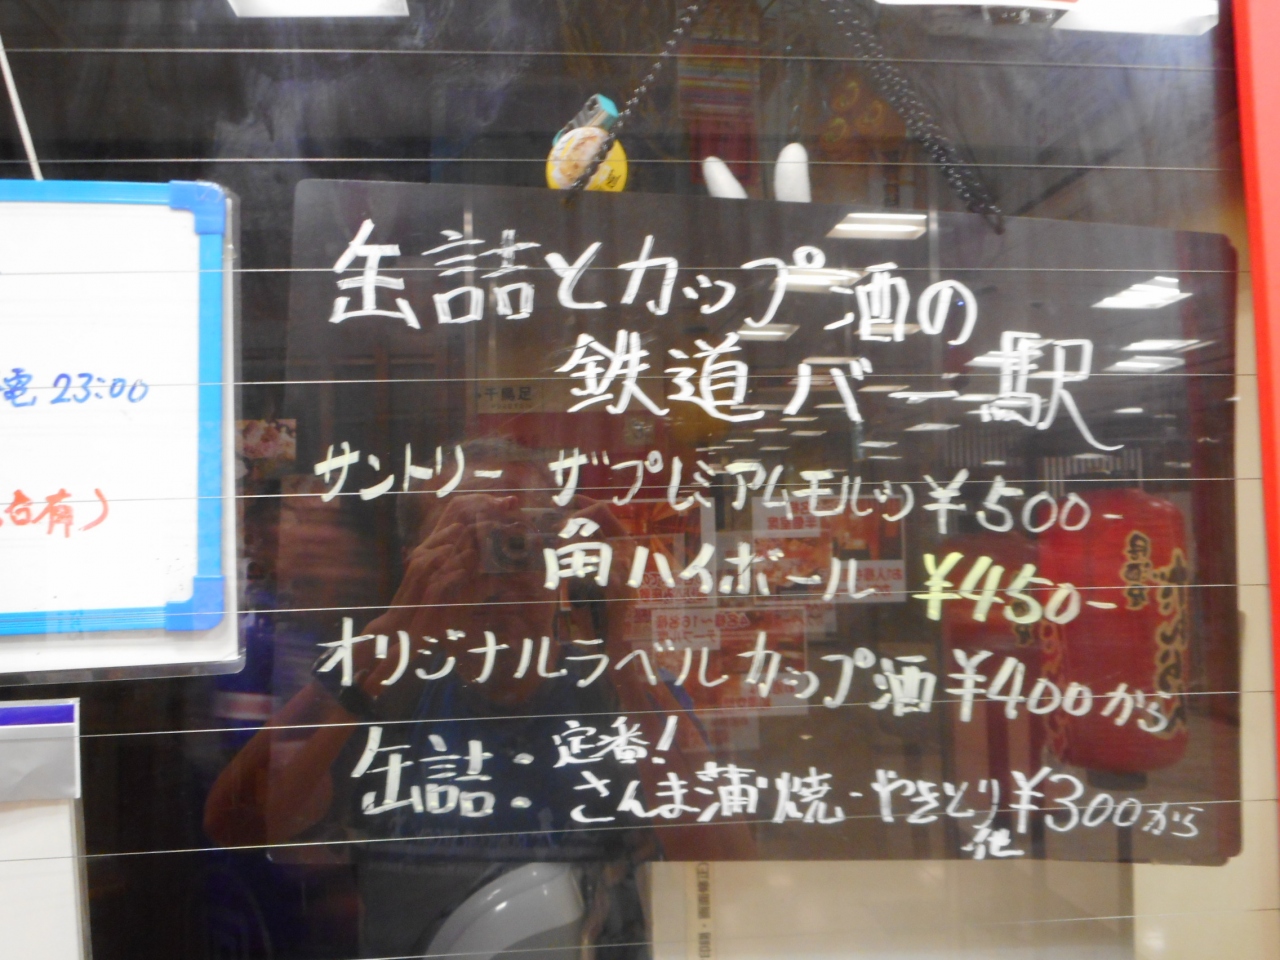 缶詰とカップ酒の
鉄道バー駅
サントリー ザ・プレミアムモルツ ¥500-
角ハイボール ¥450-
オリジナルラベル カップ酒 ¥400から
缶詰: 定番!
さんま蒲焼・やきとり ¥300から
他
電 23:00
台有)
千鳥足